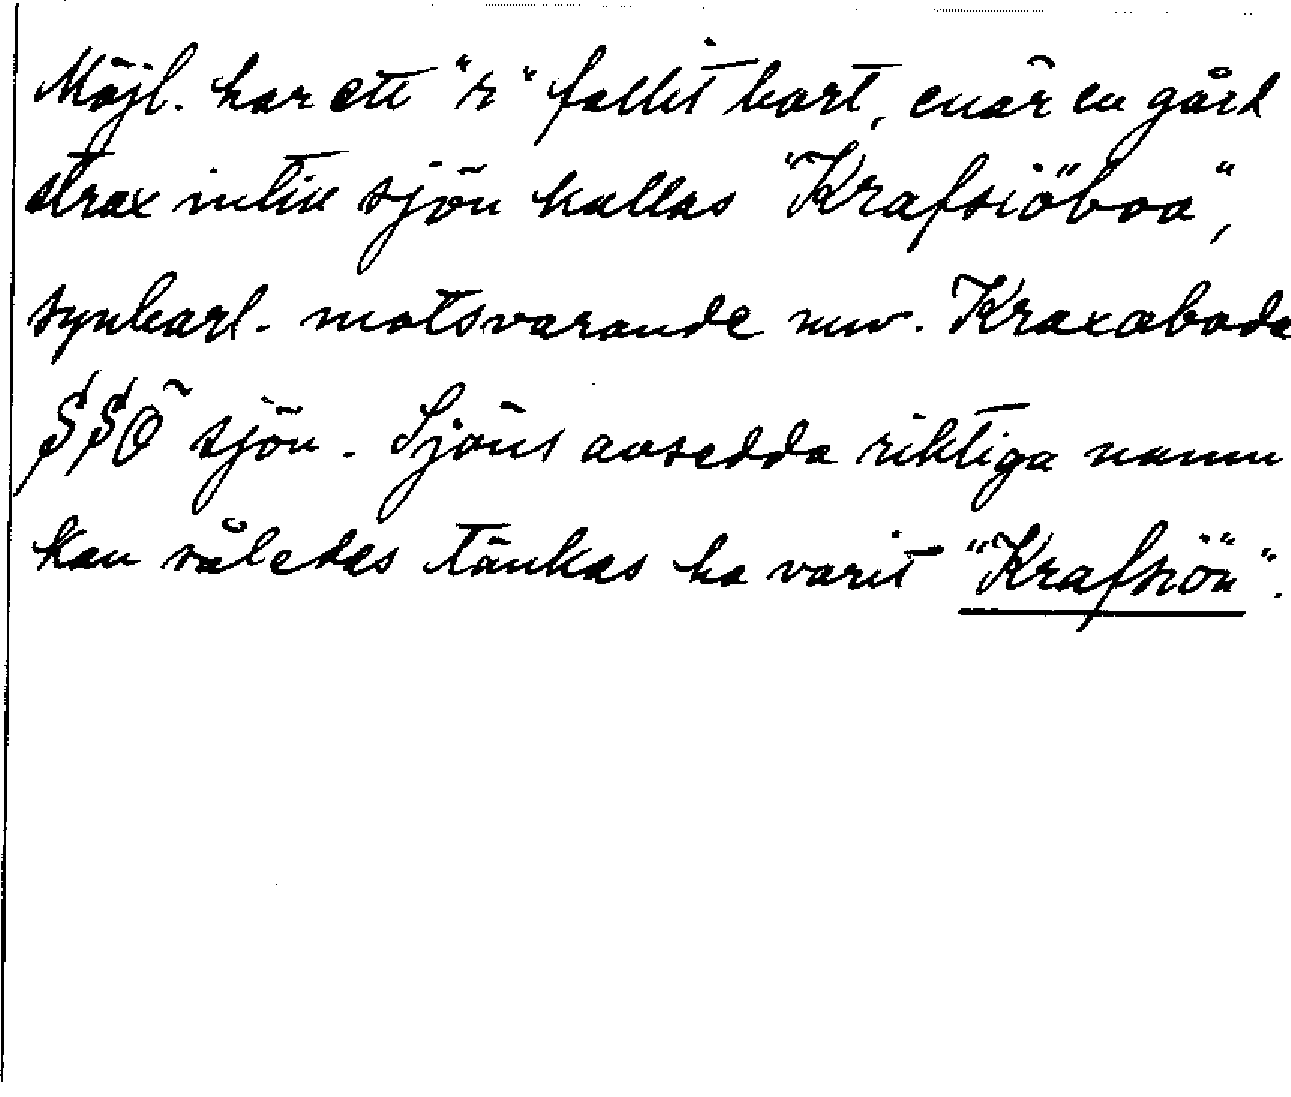 Möjl. har ett "r" fallit bort, enär en gård
strax intill sjön kallas "Krafsiöboa",
synbarl. motsvarande nuv. Kraxaboda
SSO sjön. Sjöns avsedda riktiga namn
kan således tänkas ha varit "Krafsiön".